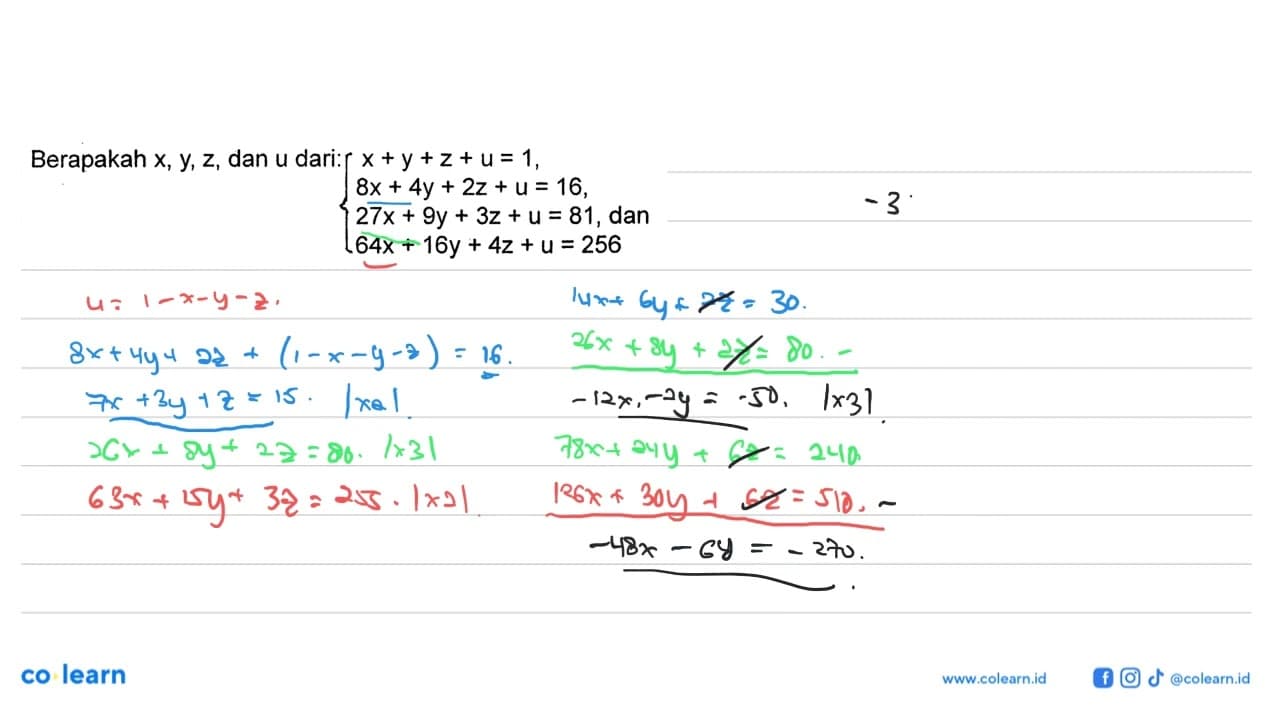 Berapakah x, y, z, dan u dari: { x + y + z + u = 1,
8x + 4y + 2z + u = 16,
27x + 9y + 3z + u = 81, dan
64x + 16y + 4z + u = 256
- 3
u = 1 - x - y - z.
8x + 4y + 2z + (1 - x - y - z) = 16.
7x + 3y + z = 15. |x2|
26x + 8y + 2z = 80. |x3|
63x + 15y + 3z = 255. |x2|
14x + 6y + 2z = 30.
26x + 8y + 2z = 80. -
-12x - 2y = -50. |x3|
78x + 24y + 6z = 240
126x + 30y + 6z = 510. -
-48x - 6y = -270.
co·learn
www.colearn.id
@colearn.id